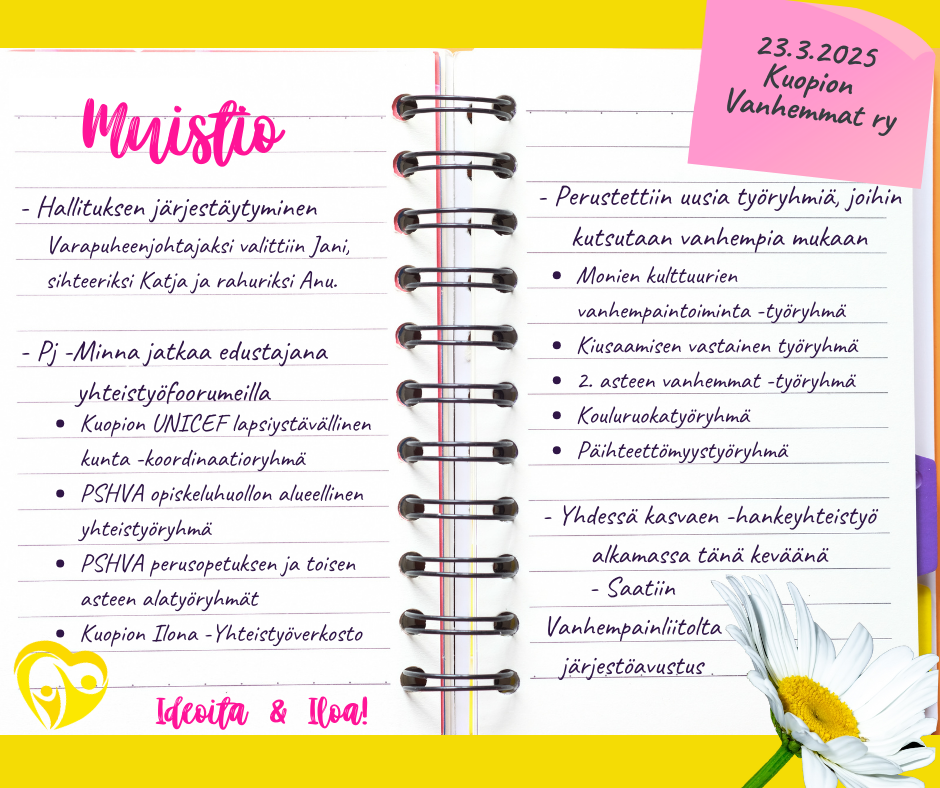 Muistio
- Hallituksen järjestäytyminen
Varapuheenjohtajaksi valittiin Jani,
sihteeriksi Katja ja rahuriksi Anu.
- Pj -Minna jatkaa edustajana
yhteistyöfoorumeilla
• Kuopion UNICEF lapsiystävällinen
kunta -koordinaatioryhmä
• PSHVA opiskeluhuollon alueellinen
yhteistyöryhmä
• PSHVA perusopetuksen ja toisen
asteen alatyöryhmät
• Kuopion Ilona -Yhteistyöverkosto
Ideoita & Iloa!
23.3.2025
Kuopion
Vanhemmat ry
- Perustettiin uusia työryhmiä, joihin
kutsutaan vanhempia mukaan
• Monien kulttuurien
vanhempaintoiminta -työryhmä
• Kiusaamisen vastainen työryhmä
• 2. asteen vanhemmat -työryhmä
• Kouluruokatyöryhmä
• Päihteettömyystyöryhmä
- Yhdessä kasvaen -hankeyhteistyö
alkamassa tänä keväänä
- Saatiin
Vanhempainliitolta
järjestöavustus